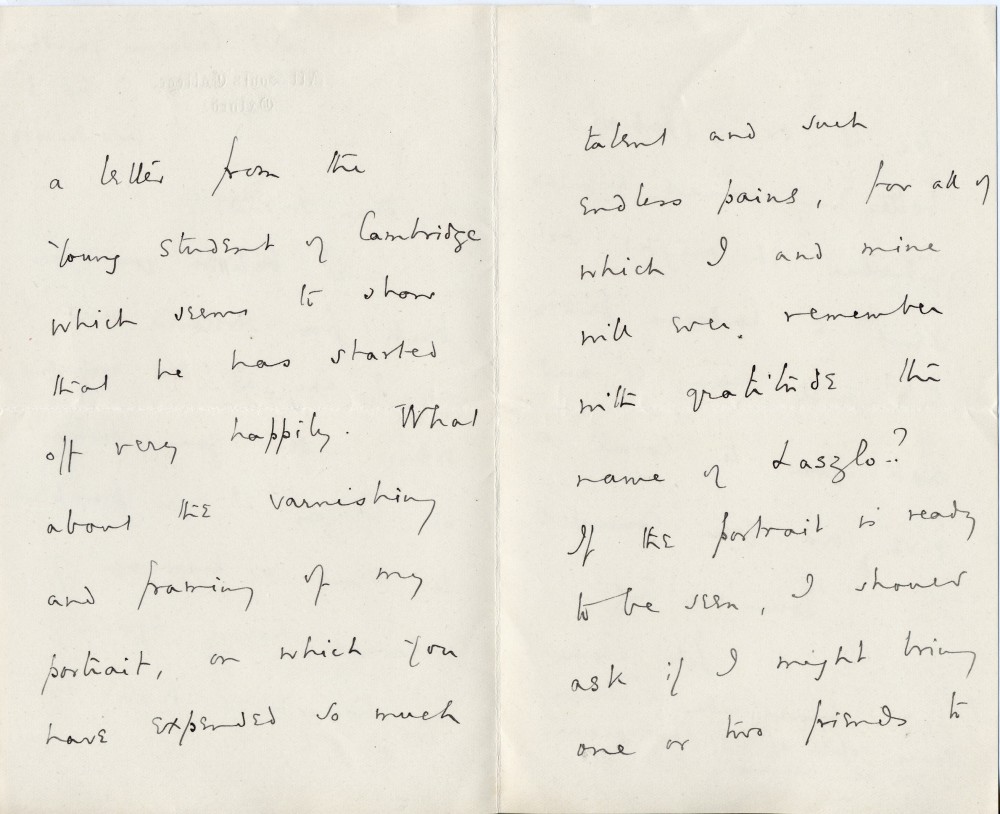 All Souls College,
Oxford.
a letter from the
young student of Cambridge
which seems to show
that he has started
off very happily. What
about the varnishing
and framing of my
portrait, on which you
have expended so much
talent and such
endless pains, for all of
which I and mine
will ever remember
with gratitude the
name of Laszlo?
If the portrait is ready
to be seen, I should
ask if I might bring
one or two friends to